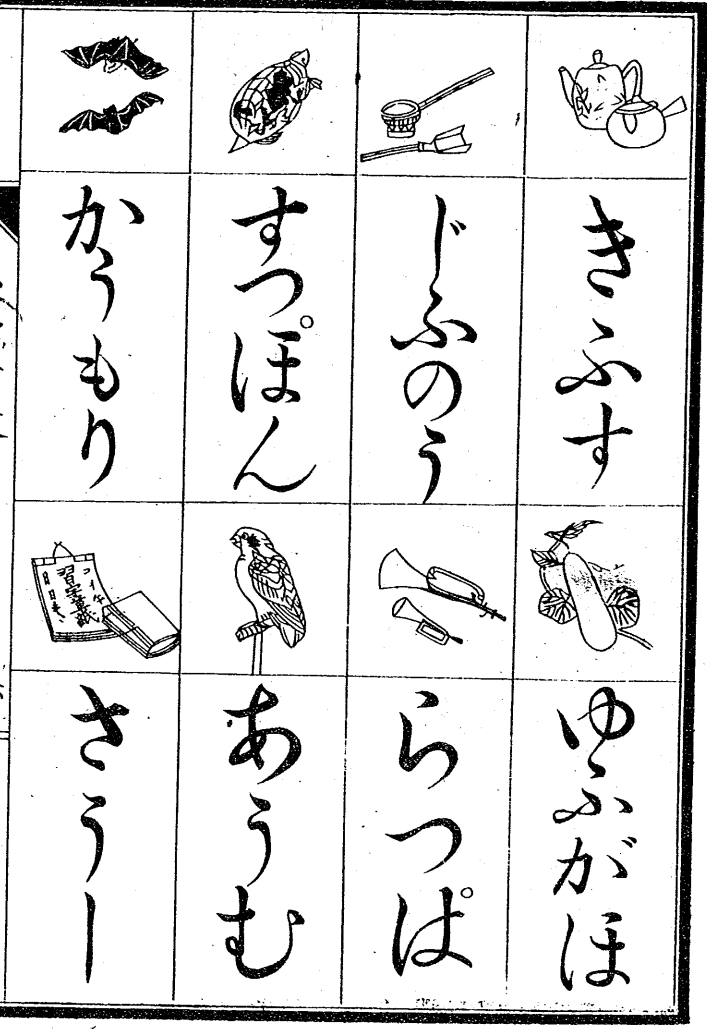 きふす
じふのう
すつぽん
かうもり
ゆふがほ
らつぱ
あうむ
さうし
習字草紙